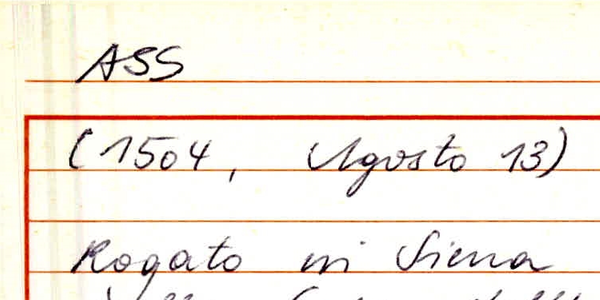 ASS
(1504, Agosto 13)
Rogato in Siena